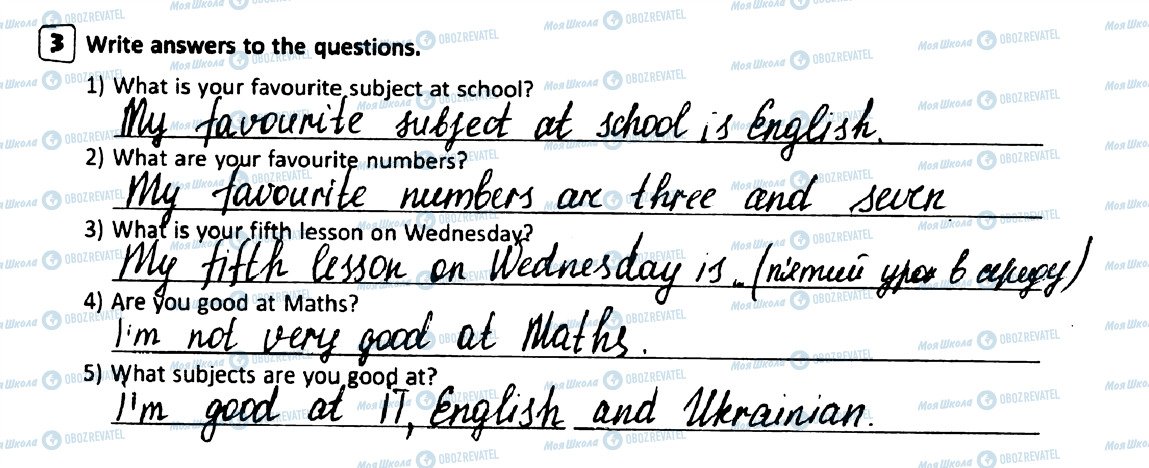 3 Write answers to the questions.
1) What is your favourite subject at school?
My favourite subject at school is English.
2) What are your favourite numbers?
My favourite numbers are three and seven
3) What is your fifth lesson on Wednesday?
My fifth lesson on Wednesday is .. (п'ятий урок в середу)
4) Are you good at Maths?
I'm not very good at Maths.
5) What subjects are you good at?
I'm good at IT, English and Ukrainian.
МояШкола OBOZREVATEL